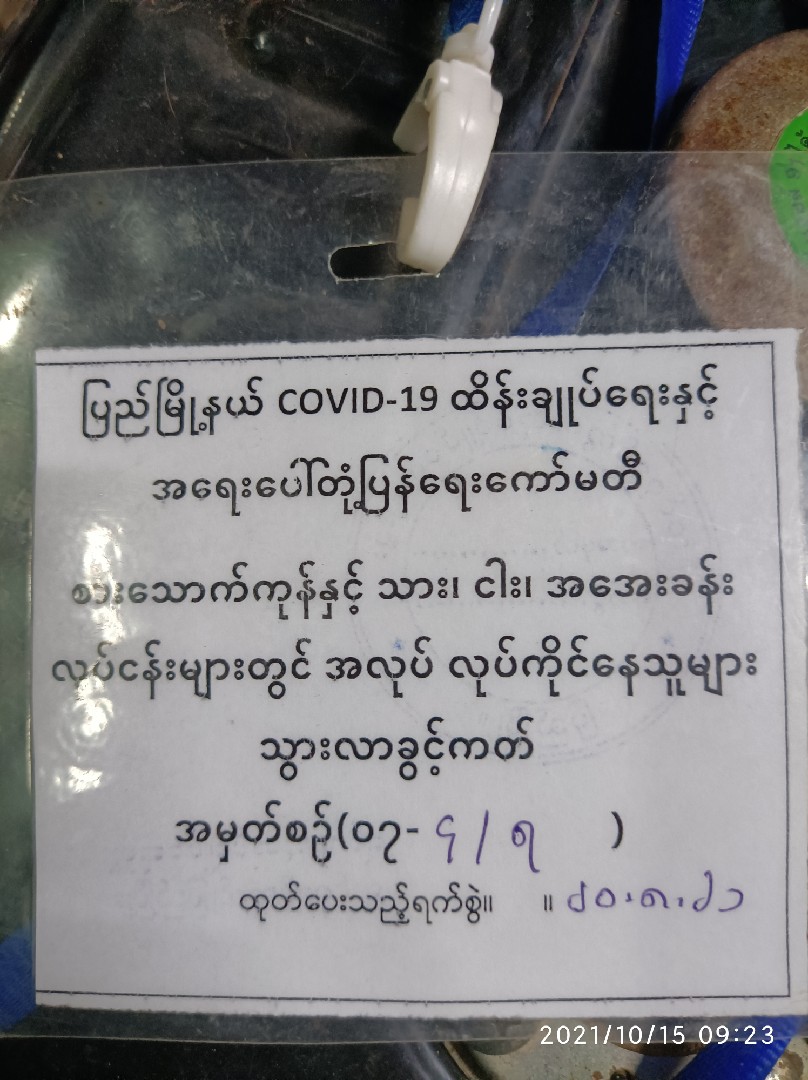 ပြည်မြို့နယ် COVID-19 ထိန်းချုပ်ရေးနှင့်
အရေးပေါ်တုံ့ပြန်ရေးကော်မတီ
စားသောက်ကုန်နှင့် သား၊ ငါး၊ အအေးခန်း
လုပ်ငန်းများတွင် အလုပ် လုပ်ကိုင်နေသူများ
သွားလာခွင့်ကတ်
အမှတ်စဉ်(၀၇- ၄/ရ )
ထုတ်ပေးသည့်ရက်စွဲ။ ။ ၂၀.၈.၂၁
2021/10/15 09:23